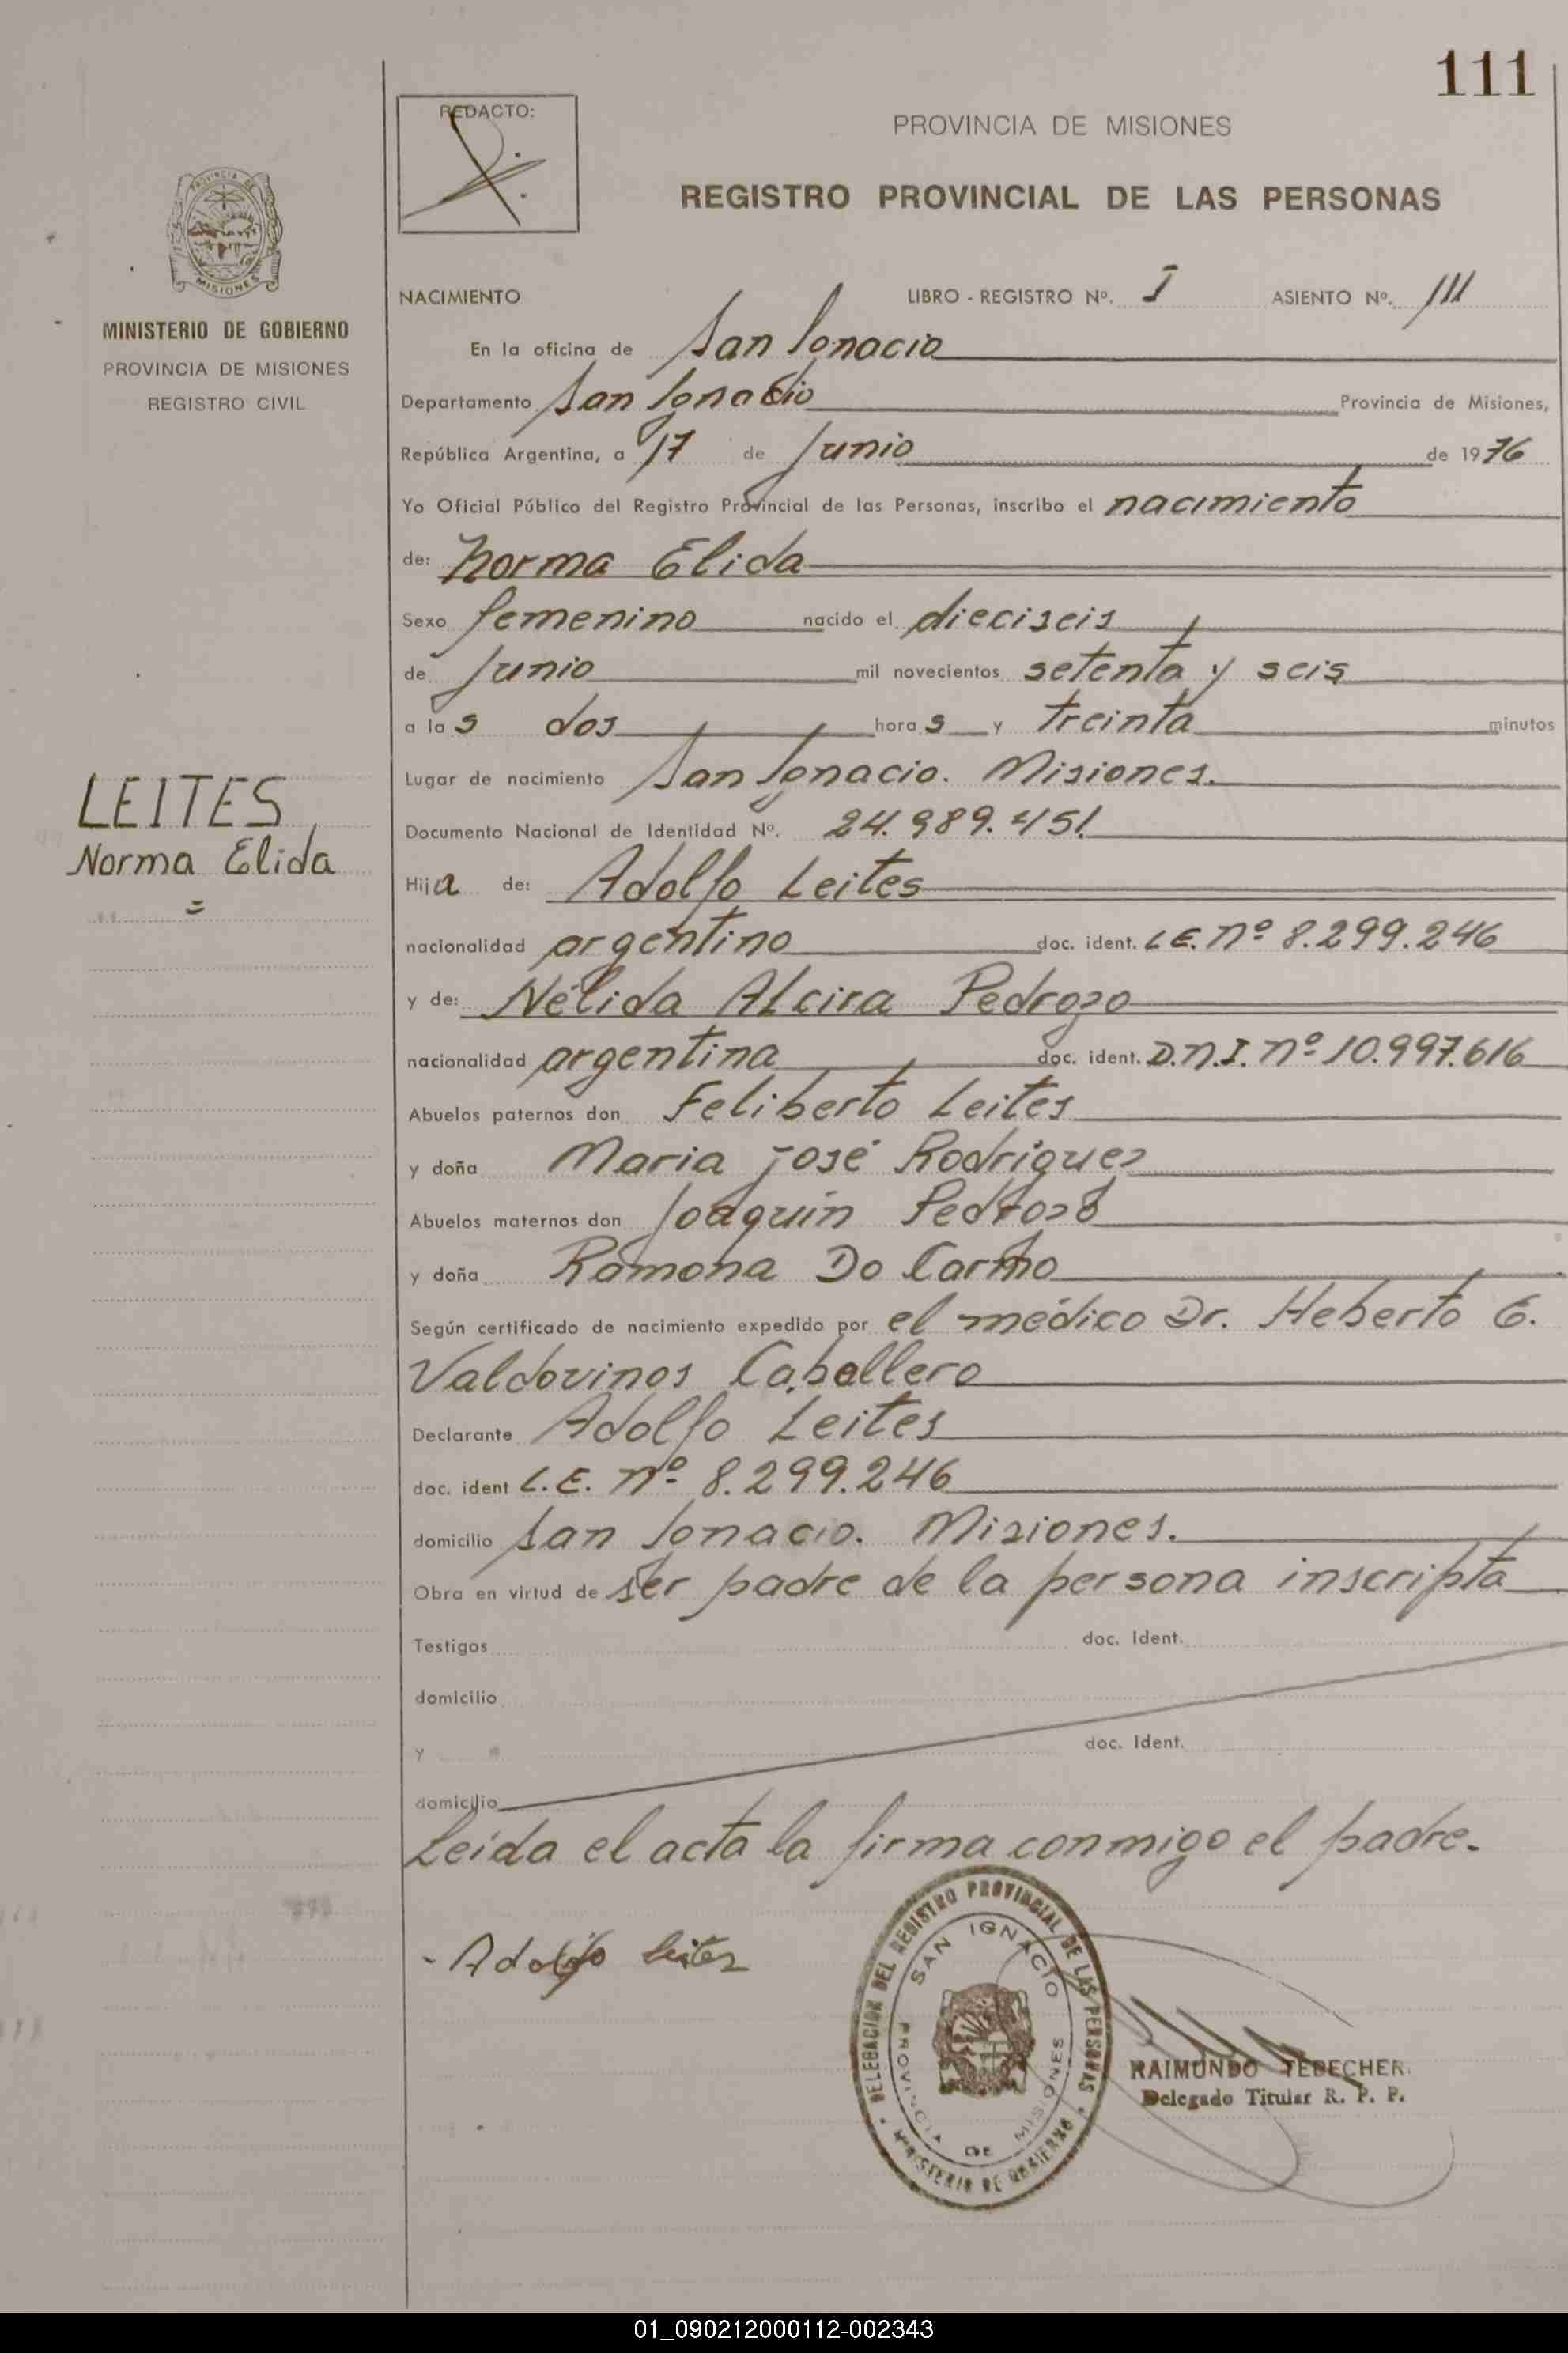 111
REDACTO:
PROVINCIA DE MISIONES
REGISTRO PROVINCIAL DE LAS PERSONAS
PROVINCIA DE
MISIONES
MINISTERIO DE GOBIERNO
PROVINCIA DE MISIONES
REGISTRO CIVIL
LEITES
Norma Elida
NACIMIENTO LIBRO - REGISTRO Nº. I ASIENTO Nº. 111
En la oficina de San Ignacio
Departamento San Ignacio Provincia de Misiones,
República Argentina, a 17 de Junio de 1976
Yo Oficial Público del Registro Provincial de las Personas, inscribo el nacimiento
de: Norma Elida
Sexo femenino nacido el dieciseis
de Junio mil novecientos setenta y seis
a las dos horas y treinta minutos
Lugar de nacimiento San Ignacio. Misiones.
Documento Nacional de Identidad Nº. 24.989.451
Hija de: Adolfo Leites
nacionalidad argentino doc. ident. L.E. nº 8.299.246
y de: Nélida Alcira Pedrozo
nacionalidad argentina doc. ident. D.N.I. nº 10.997.616
Abuelos paternos don Feliberto Leites
y doña Maria José Rodriguez
Abuelos maternos don Joaquín Pedrozo
y doña Ramona Do Carmo
Según certificado de nacimiento expedido por el médico Dr. Heberto G.
Valdovinos Caballero
Declarante Adolfo Leites
doc. ident L.E. nº 8.299.246
domicilio San Ignacio. Misiones.
Obra en virtud de ser padre de la persona inscripta
Testigos doc. Ident.
domicilio
y doc. Ident.
domicilio
Leída el acta la firma conmigo el padre.
- Adolfo Leites
DELEGACION DEL REGISTRO PROVINCIAL DE LAS PERSONAS
SAN IGNACIO
PROVINCIA DE MISIONES
MINISTERIO DE GOBIERNO
RAIMUNDO TEBECHER
Delegado Titular R. P. P.
01_090212000112-002343